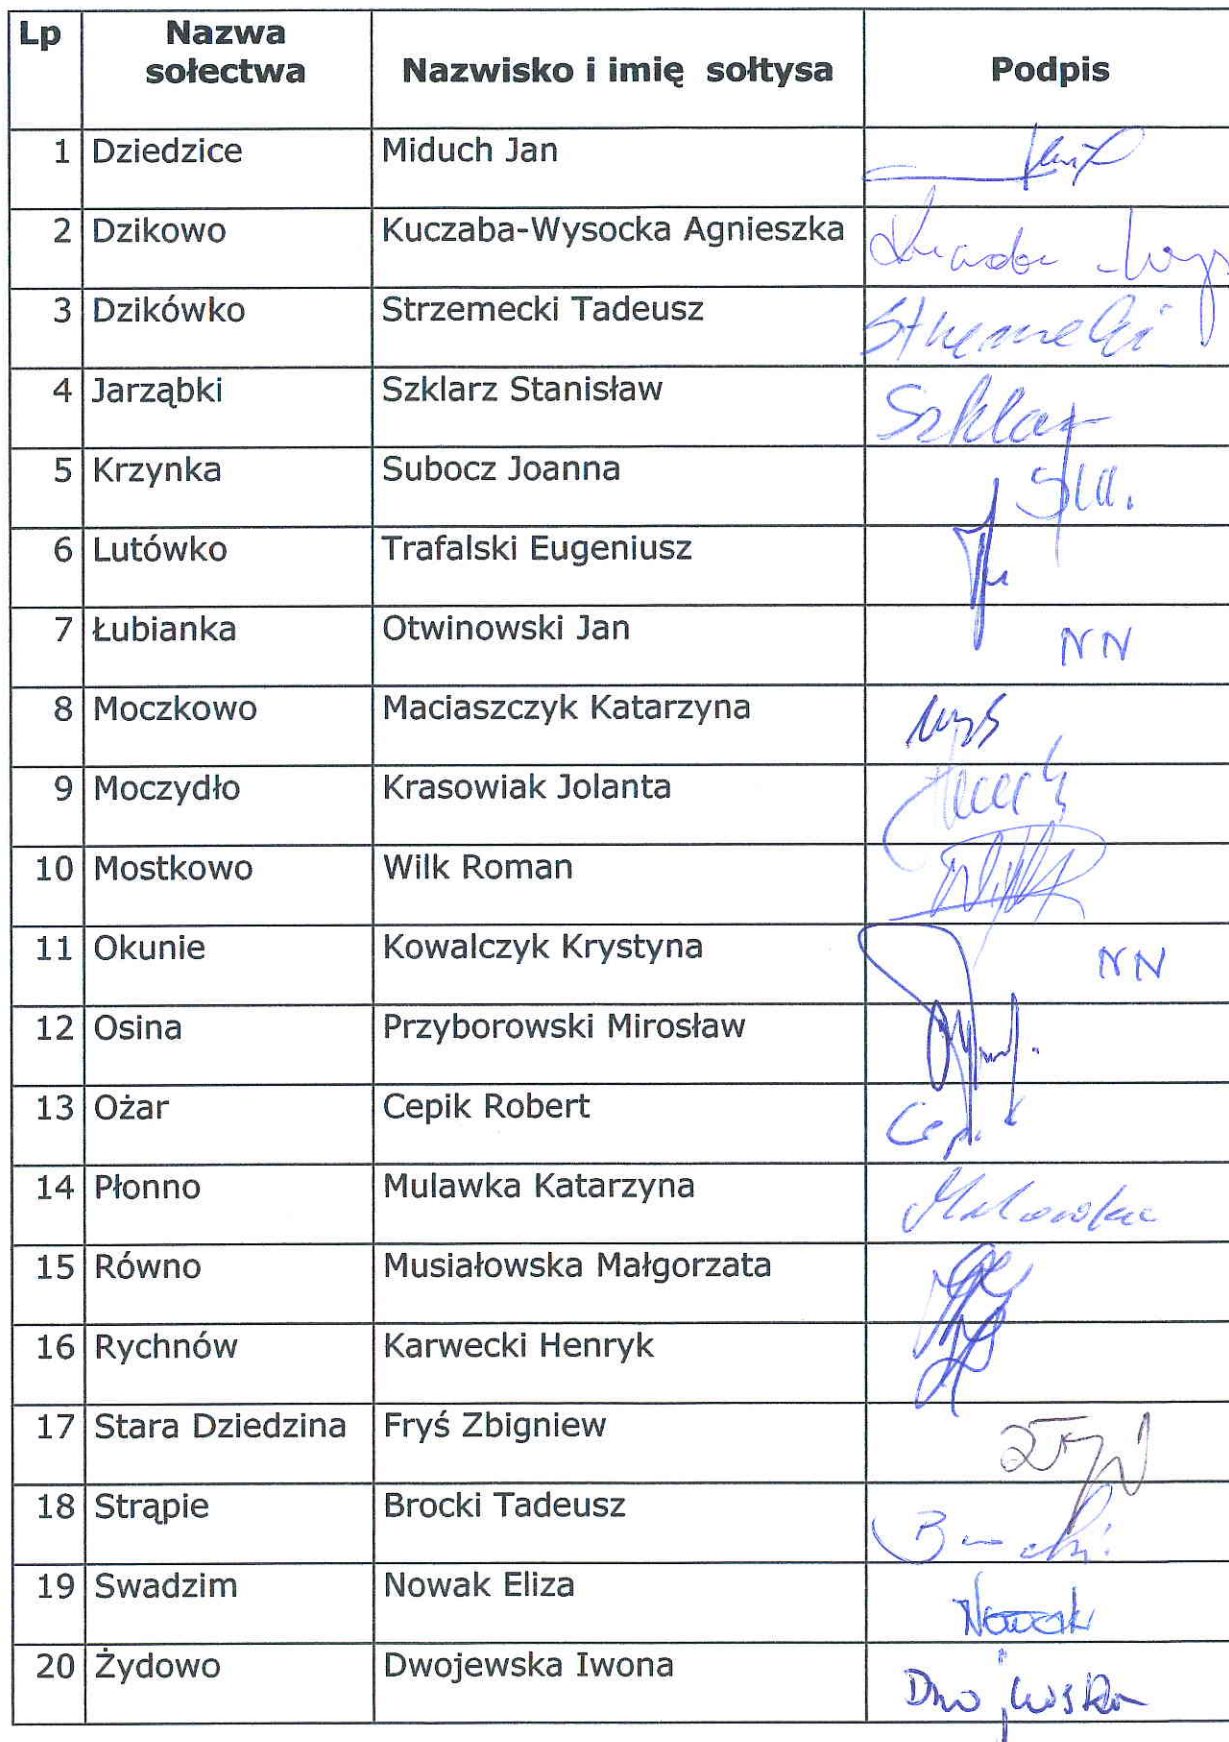 Lp Nazwa sołectwa Nazwisko i imię sołtysa Podpis
1 Dziedzice Miduch Jan
2 Dzikowo Kuczaba-Wysocka Agnieszka
3 Dzikówko Strzemecki Tadeusz
4 Jarząbki Szklarz Stanisław Szklarz
5 Krzynka Subocz Joanna
6 Lutówko Trafalski Eugeniusz
7 Łubianka Otwinowski Jan NN
8 Moczkowo Maciaszczyk Katarzyna
9 Moczydło Krasowiak Jolanta
10 Mostkowo Wilk Roman
11 Okunie Kowalczyk Krystyna NN
12 Osina Przyborowski Mirosław
13 Ożar Cepik Robert Cepik
14 Płonno Mulawka Katarzyna
15 Równo Musiałowska Małgorzata
16 Rychnów Karwecki Henryk
17 Stara Dziedzina Fryś Zbigniew
18 Strąpie Brocki Tadeusz Brocki
19 Swadzim Nowak Eliza Nowak
20 Żydowo Dwojewska Iwona Dwojewska